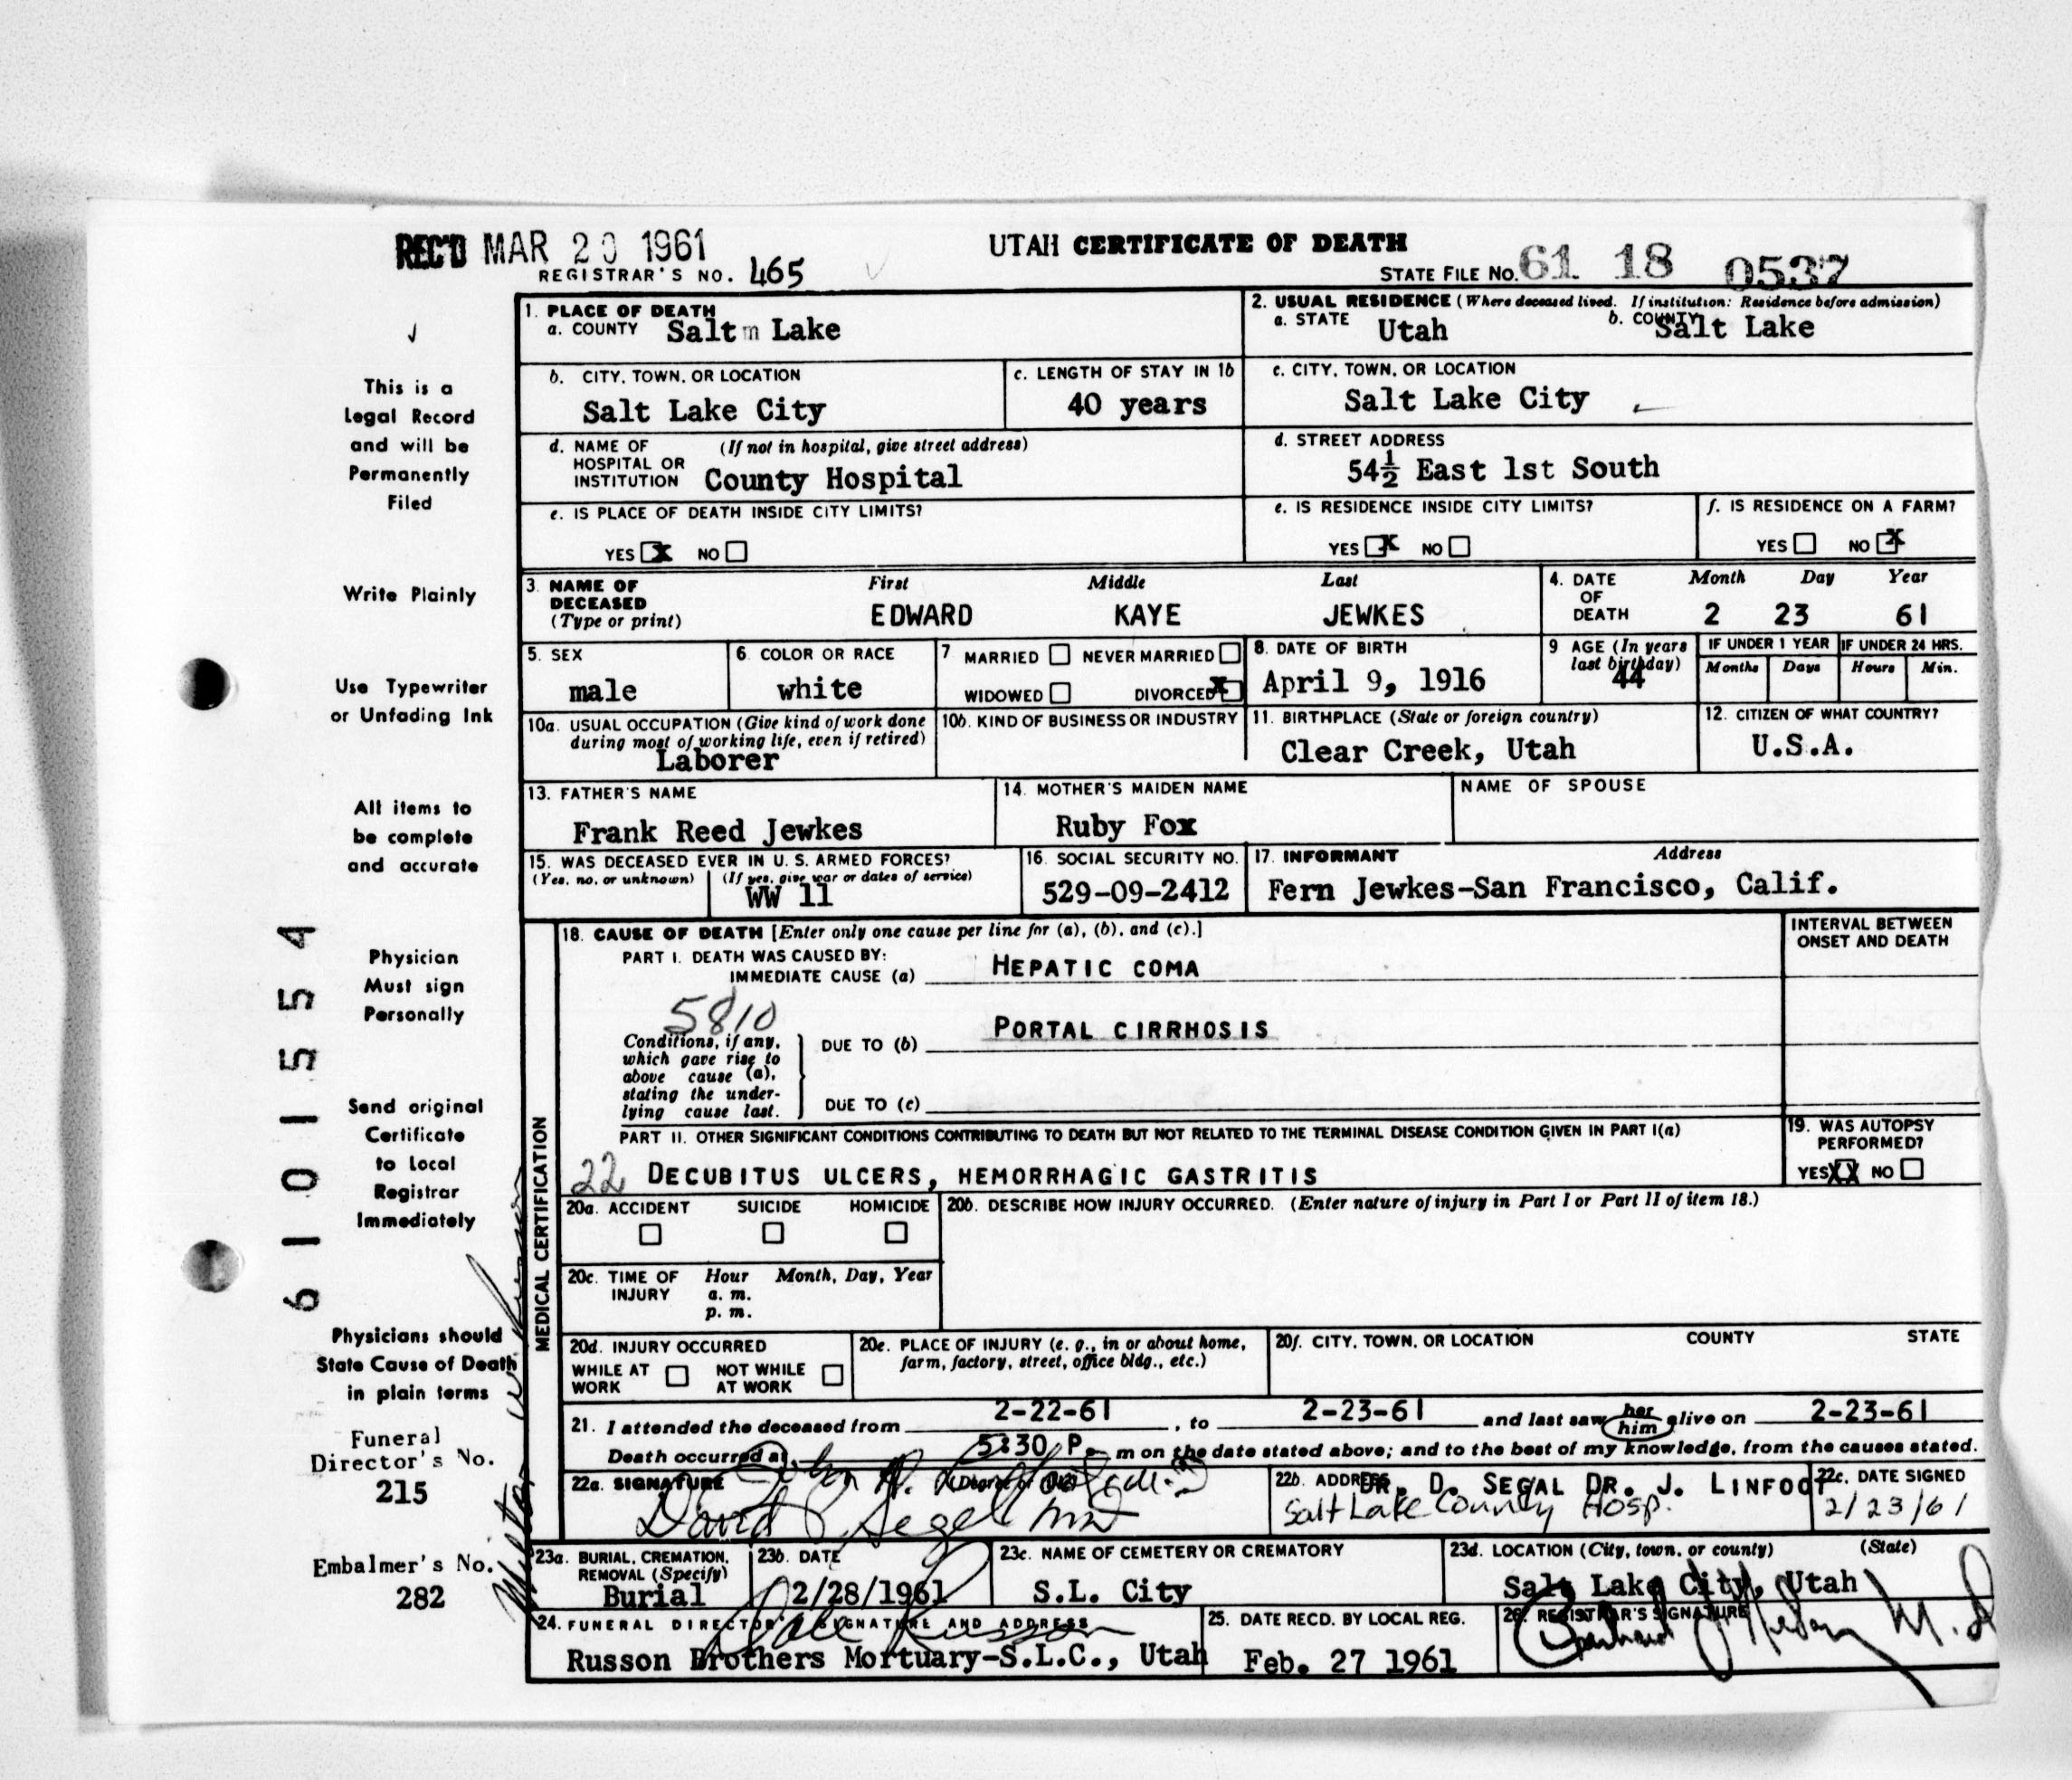 REC'D MAR 20 1961
UTAH CERTIFICATE OF DEATH
REGISTRAR'S NO. 465
STATE FILE NO. 61 18 0537
This is a
Legal Record
and will be
Permanently
Filed
Write Plainly
Use Typewriter
or Unfading Ink
All items to
be complete
and accurate
Physician
Must sign
Personally
Send original
Certificate
to Local
Registrar
Immediately
Physicians should
State Cause of Death
in plain terms
Funeral
Director's No.
215
Embalmer's No.
282
6101554
1. PLACE OF DEATH
a. COUNTY Saltm Lake
2. USUAL RESIDENCE (Where deceased lived. If institution: Residence before admission)
a. STATE Utah b. COUNTY Salt Lake
b. CITY, TOWN, OR LOCATION
Salt Lake City
c. LENGTH OF STAY IN 1b
40 years
c. CITY, TOWN, OR LOCATION
Salt Lake City
d. NAME OF (If not in hospital, give street address)
HOSPITAL OR
INSTITUTION County Hospital
d. STREET ADDRESS
54½ East 1st South
e. IS PLACE OF DEATH INSIDE CITY LIMITS?
YES X NO
e. IS RESIDENCE INSIDE CITY LIMITS?
YES X NO
f. IS RESIDENCE ON A FARM?
YES NO X
3. NAME OF DECEASED (Type or print)
First Middle Last
EDWARD KAYE JEWKES
4. DATE OF DEATH
Month Day Year
2 23 61
5. SEX
male
6. COLOR OR RACE
white
7 MARRIED NEVER MARRIED
WIDOWED DIVORCED X
8. DATE OF BIRTH
April 9, 1916
9 AGE (In years
last birthday)
44
IF UNDER 1 YEAR IF UNDER 24 HRS.
Months Days Hours Min.
10a. USUAL OCCUPATION (Give kind of work done
during most of working life, even if retired)
Laborer
10b. KIND OF BUSINESS OR INDUSTRY
11. BIRTHPLACE (State or foreign country)
Clear Creek, Utah
12. CITIZEN OF WHAT COUNTRY?
U.S.A.
13. FATHER'S NAME
Frank Reed Jewkes
14. MOTHER'S MAIDEN NAME
Ruby Fox
NAME OF SPOUSE
15. WAS DECEASED EVER IN U. S. ARMED FORCES?
(Yes, no, or unknown) (If yes, give war or dates of service)
WW 11
16. SOCIAL SECURITY NO.
529-09-2412
17. INFORMANT Address
Fern Jewkes-San Francisco, Calif.
MEDICAL CERTIFICATION
18. CAUSE OF DEATH [Enter only one cause per line for (a), (b), and (c).]
INTERVAL BETWEEN
ONSET AND DEATH
PART I. DEATH WAS CAUSED BY:
IMMEDIATE CAUSE (a) HEPATIC COMA
5810
Conditions, if any,
which gave rise to
above cause (a),
stating the under-
lying cause last.
DUE TO (b) PORTAL CIRRHOSIS
DUE TO (c)
PART II. OTHER SIGNIFICANT CONDITIONS CONTRIBUTING TO DEATH BUT NOT RELATED TO THE TERMINAL DISEASE CONDITION GIVEN IN PART I(a)
22 DECUBITUS ULCERS, HEMORRHAGIC GASTRITIS
19. WAS AUTOPSY
PERFORMED?
YES XX NO
20a. ACCIDENT SUICIDE HOMICIDE
20b. DESCRIBE HOW INJURY OCCURRED. (Enter nature of injury in Part I or Part II of item 18.)
20c. TIME OF INJURY
Hour Month, Day, Year
a. m.
p. m.
20d. INJURY OCCURRED
WHILE AT WORK NOT WHILE AT WORK
20e. PLACE OF INJURY (e. g., in or about home,
farm, factory, street, office bldg., etc.)
20f. CITY, TOWN, OR LOCATION COUNTY STATE
21. I attended the deceased from 2-22-61, to 2-23-61 and last saw her him alive on 2-23-61
Death occurred at 5:30 P. m on the date stated above; and to the best of my knowledge, from the causes stated.
22a. SIGNATURE
David Segel MD
22b. ADDRESS DR. D. SEGAL DR. J. LINFOOT
Salt Lake County Hosp.
22c. DATE SIGNED
2/23/61
23a. BURIAL, CREMATION,
REMOVAL (Specify)
Burial
23b. DATE
2/28/1961
23c. NAME OF CEMETERY OR CREMATORY
S.L. City
23d. LOCATION (City, town, or county) (State)
Salt Lake City, Utah
24. FUNERAL DIRECTOR'S SIGNATURE AND ADDRESS
Russon
Russon Brothers Mortuary-S.L.C., Utah
25. DATE RECD. BY LOCAL REG.
Feb. 27 1961
26. REGISTRAR'S SIGNATURE